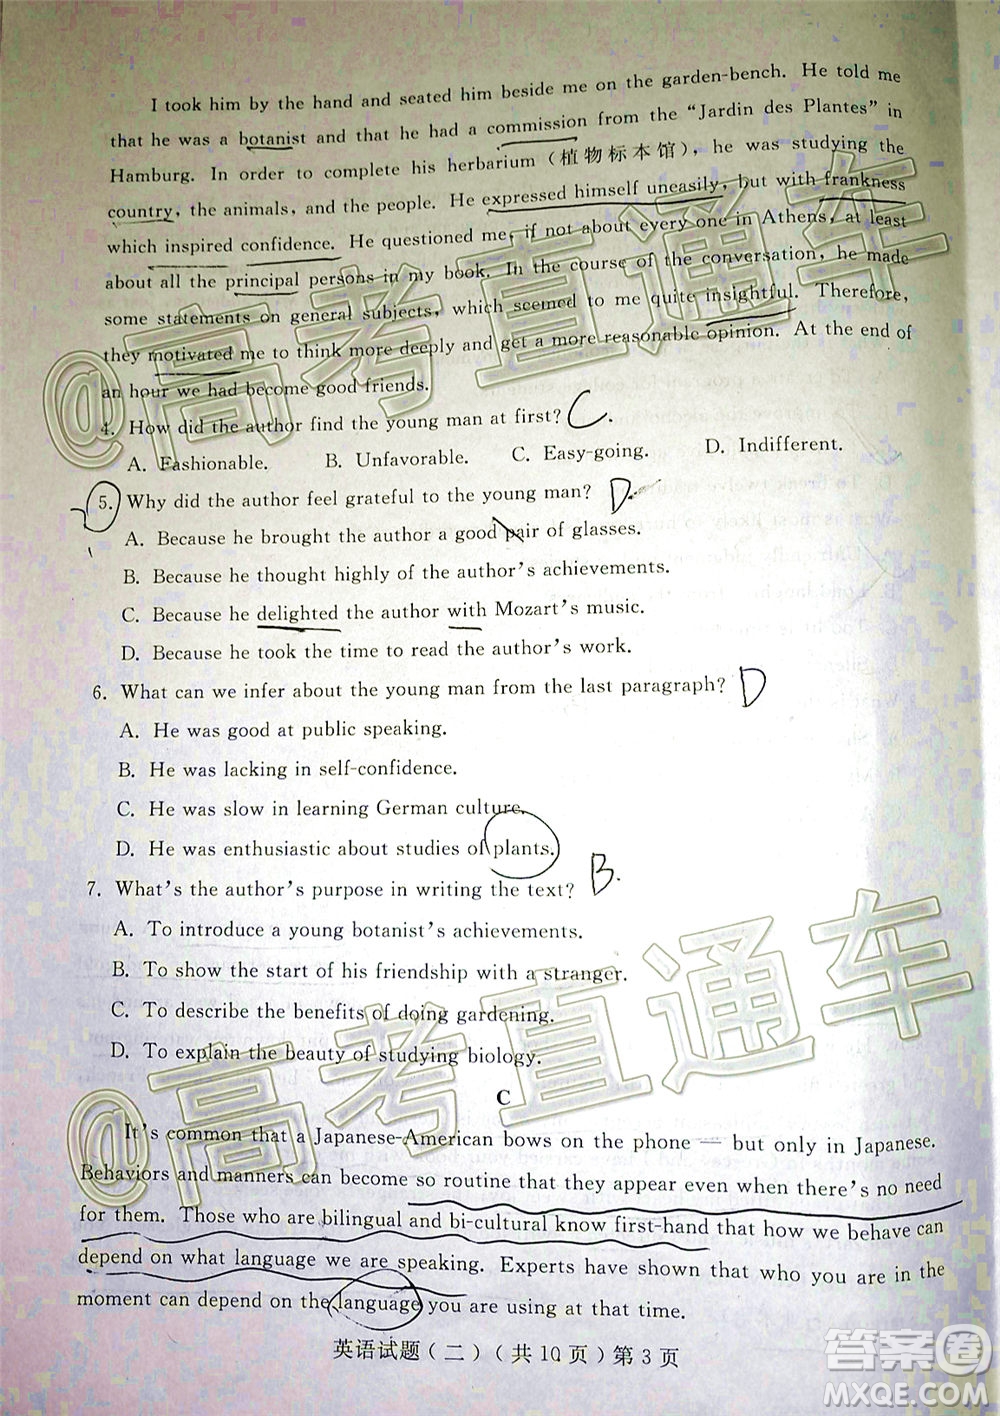 I took him by the hand and seated him beside me on the garden-bench. He told me
that he was a botanist and that he had a commission from the “Jardin des Plantes” in
Hamburg. In order to complete his herbarium (植物标本馆), he was studying the
country, the animals, and the people. He expressed himself uneasily, but with frankness
which inspired confidence. He questioned me, if not about every one in Athens, at least
about all the principal persons in my book. In the course of the conversation, he made
some statements on general subjects, which seemed to me quite insightful. Therefore,
they motivated me to think more deeply and get a more reasonable opinion. At the end of
an hour we had become good friends.
4. How did the author find the young man at first? C.
A. Fashionable. B. Unfavorable. C. Easy-going. D. Indifferent.
5. Why did the author feel grateful to the young man? D
A. Because he brought the author a good pair of glasses.
B. Because he thought highly of the author’s achievements.
C. Because he delighted the author with Mozart’s music.
D. Because he took the time to read the author’s work.
6. What can we infer about the young man from the last paragraph? D
A. He was good at public speaking.
B. He was lacking in self-confidence.
C. He was slow in learning German culture.
D. He was enthusiastic about studies of plants.
7. What’s the author’s purpose in writing the text? B.
A. To introduce a young botanist’s achievements.
B. To show the start of his friendship with a stranger.
C. To describe the benefits of doing gardening.
D. To explain the beauty of studying biology.
C
It’s common that a Japanese-American bows on the phone — but only in Japanese.
Behaviors and manners can become so routine that they appear even when there’s no need
for them. Those who are bilingual and bi-cultural know first-hand that how we behave can
depend on what language we are speaking. Experts have shown that who you are in the
moment can depend on the language you are using at that time.
英语试题(二)(共10页)第3页
@高考直通车
@高考直通车
答案圈
MXQE.COM